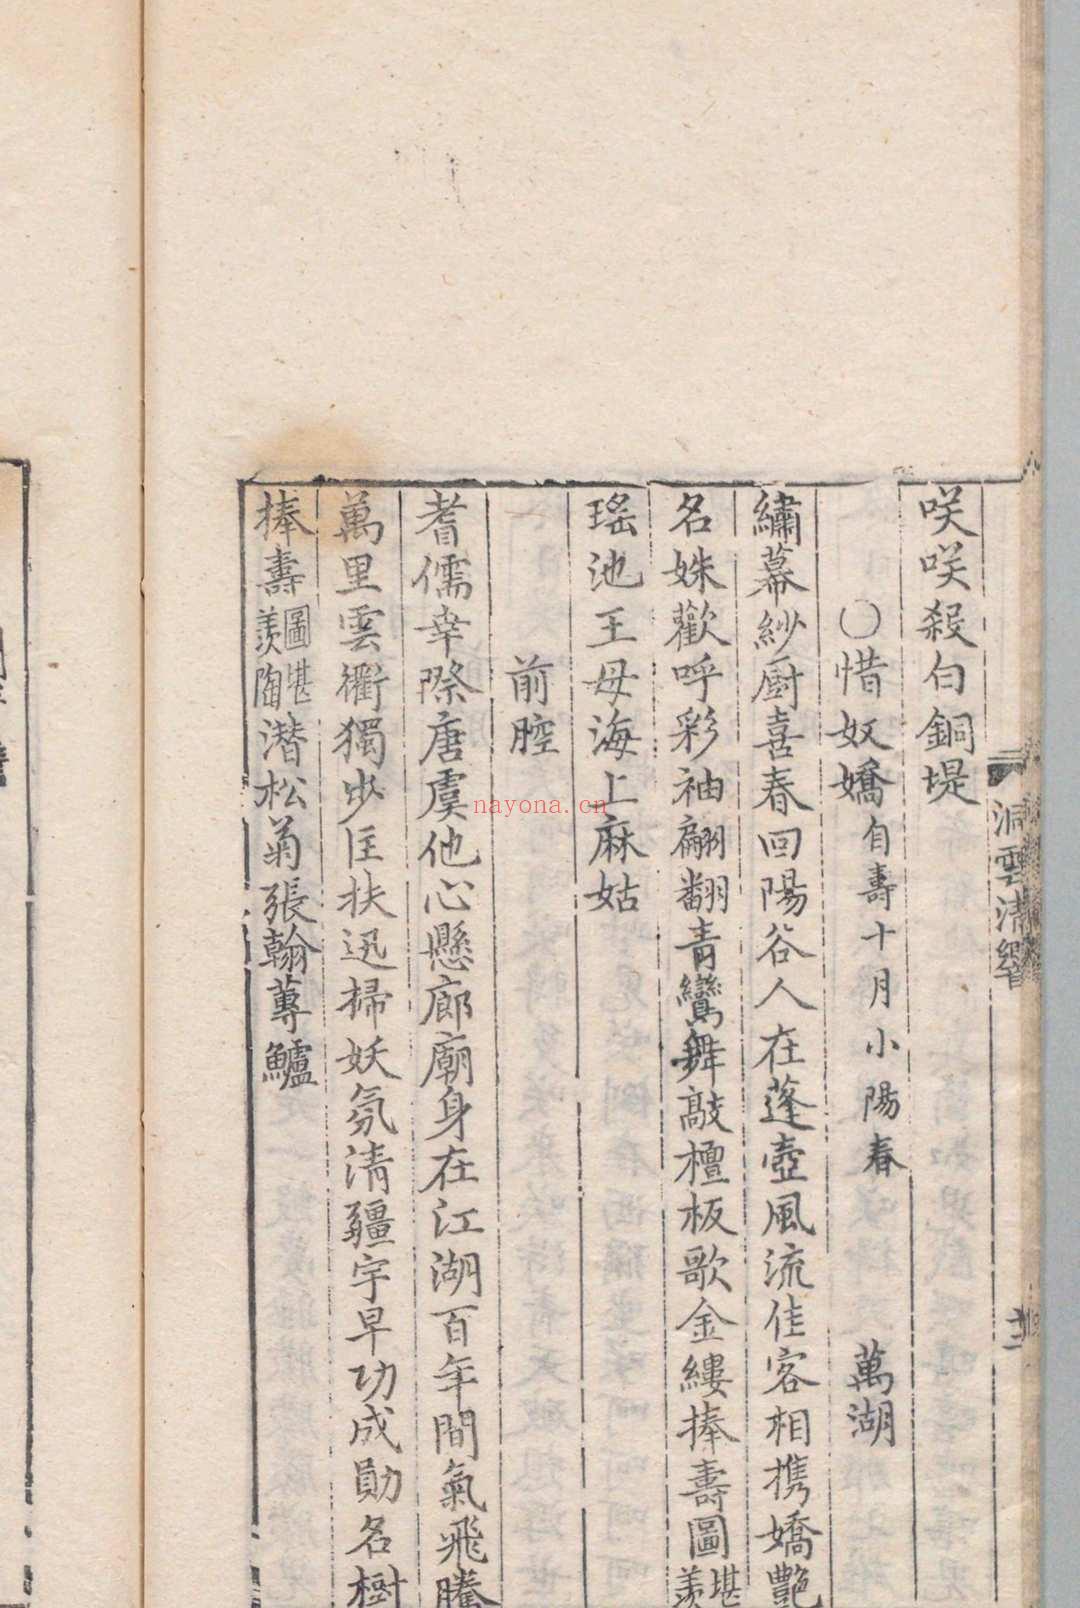 洞雲清響
十二
咲咲殺白銅堤
○惜奴嬌 自壽十月小陽春 萬湖
繡幕紗厨喜春回陽谷人在蓬壺風流佳客相携嬌艷
名姝歡呼彩袖翩翻青鸞舞敲檀板歌金縷捧壽圖堪羨
瑤池王母海上麻姑
前腔
耆儒幸際唐虞他心懸廊廟身在江湖百年間氣飛騰
萬里雲衢獨步匡扶迅掃妖氛清疆宇早功成勛名樹
捧壽圖堪羨陶潜松菊張翰蓴鱸
nayona.cn